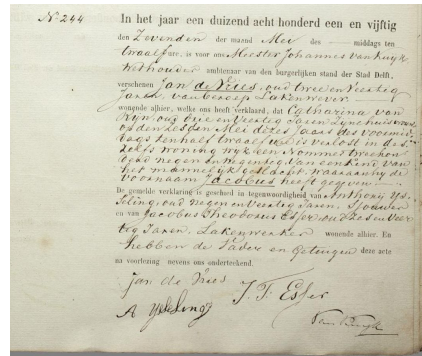 No 244
In het jaar een duizend acht honderd een en vijftig
den Zevenden der maand Mei des — middags ten
twaalf ure, is voor ons Meester Johannes van Kuyk
Wethouder ambtenaar van den burgerlijken stand der Stad Delft,
verschenen Jan de Vries, oud twee en veertig
Jaren van beroep Lakenwever
wonende alhier, welke ons heeft verklaard, dat Catharina van
Ryn oud drie en veertig Jaren Zyne huisvrouw
op den zesden Mei dezes jaars des voormid
dags ten half twaalf ure is verlost in des
zelfs woning wyk een Nommer twee hon
derd negen en negentig van een kind van
het mannelijk geslacht, waaraan hy de
voornaam Jacobus heeft gegeven —
De gemelde verklaring is geschied in tegenwoordigheid van Anthonij Ys
seling, oud negen en veertig Jaren, Sjouwer
en van Jacobus Theodorus Esser oud zes en veer
tig Jaren, Lakenwerker wonende alhier. En
hebben de Vader en Getuigen deze acte
na voorlezing nevens ons onderteekend.
Jan de Vries
J. T. Esser
A Ysseling
Van Kuyk